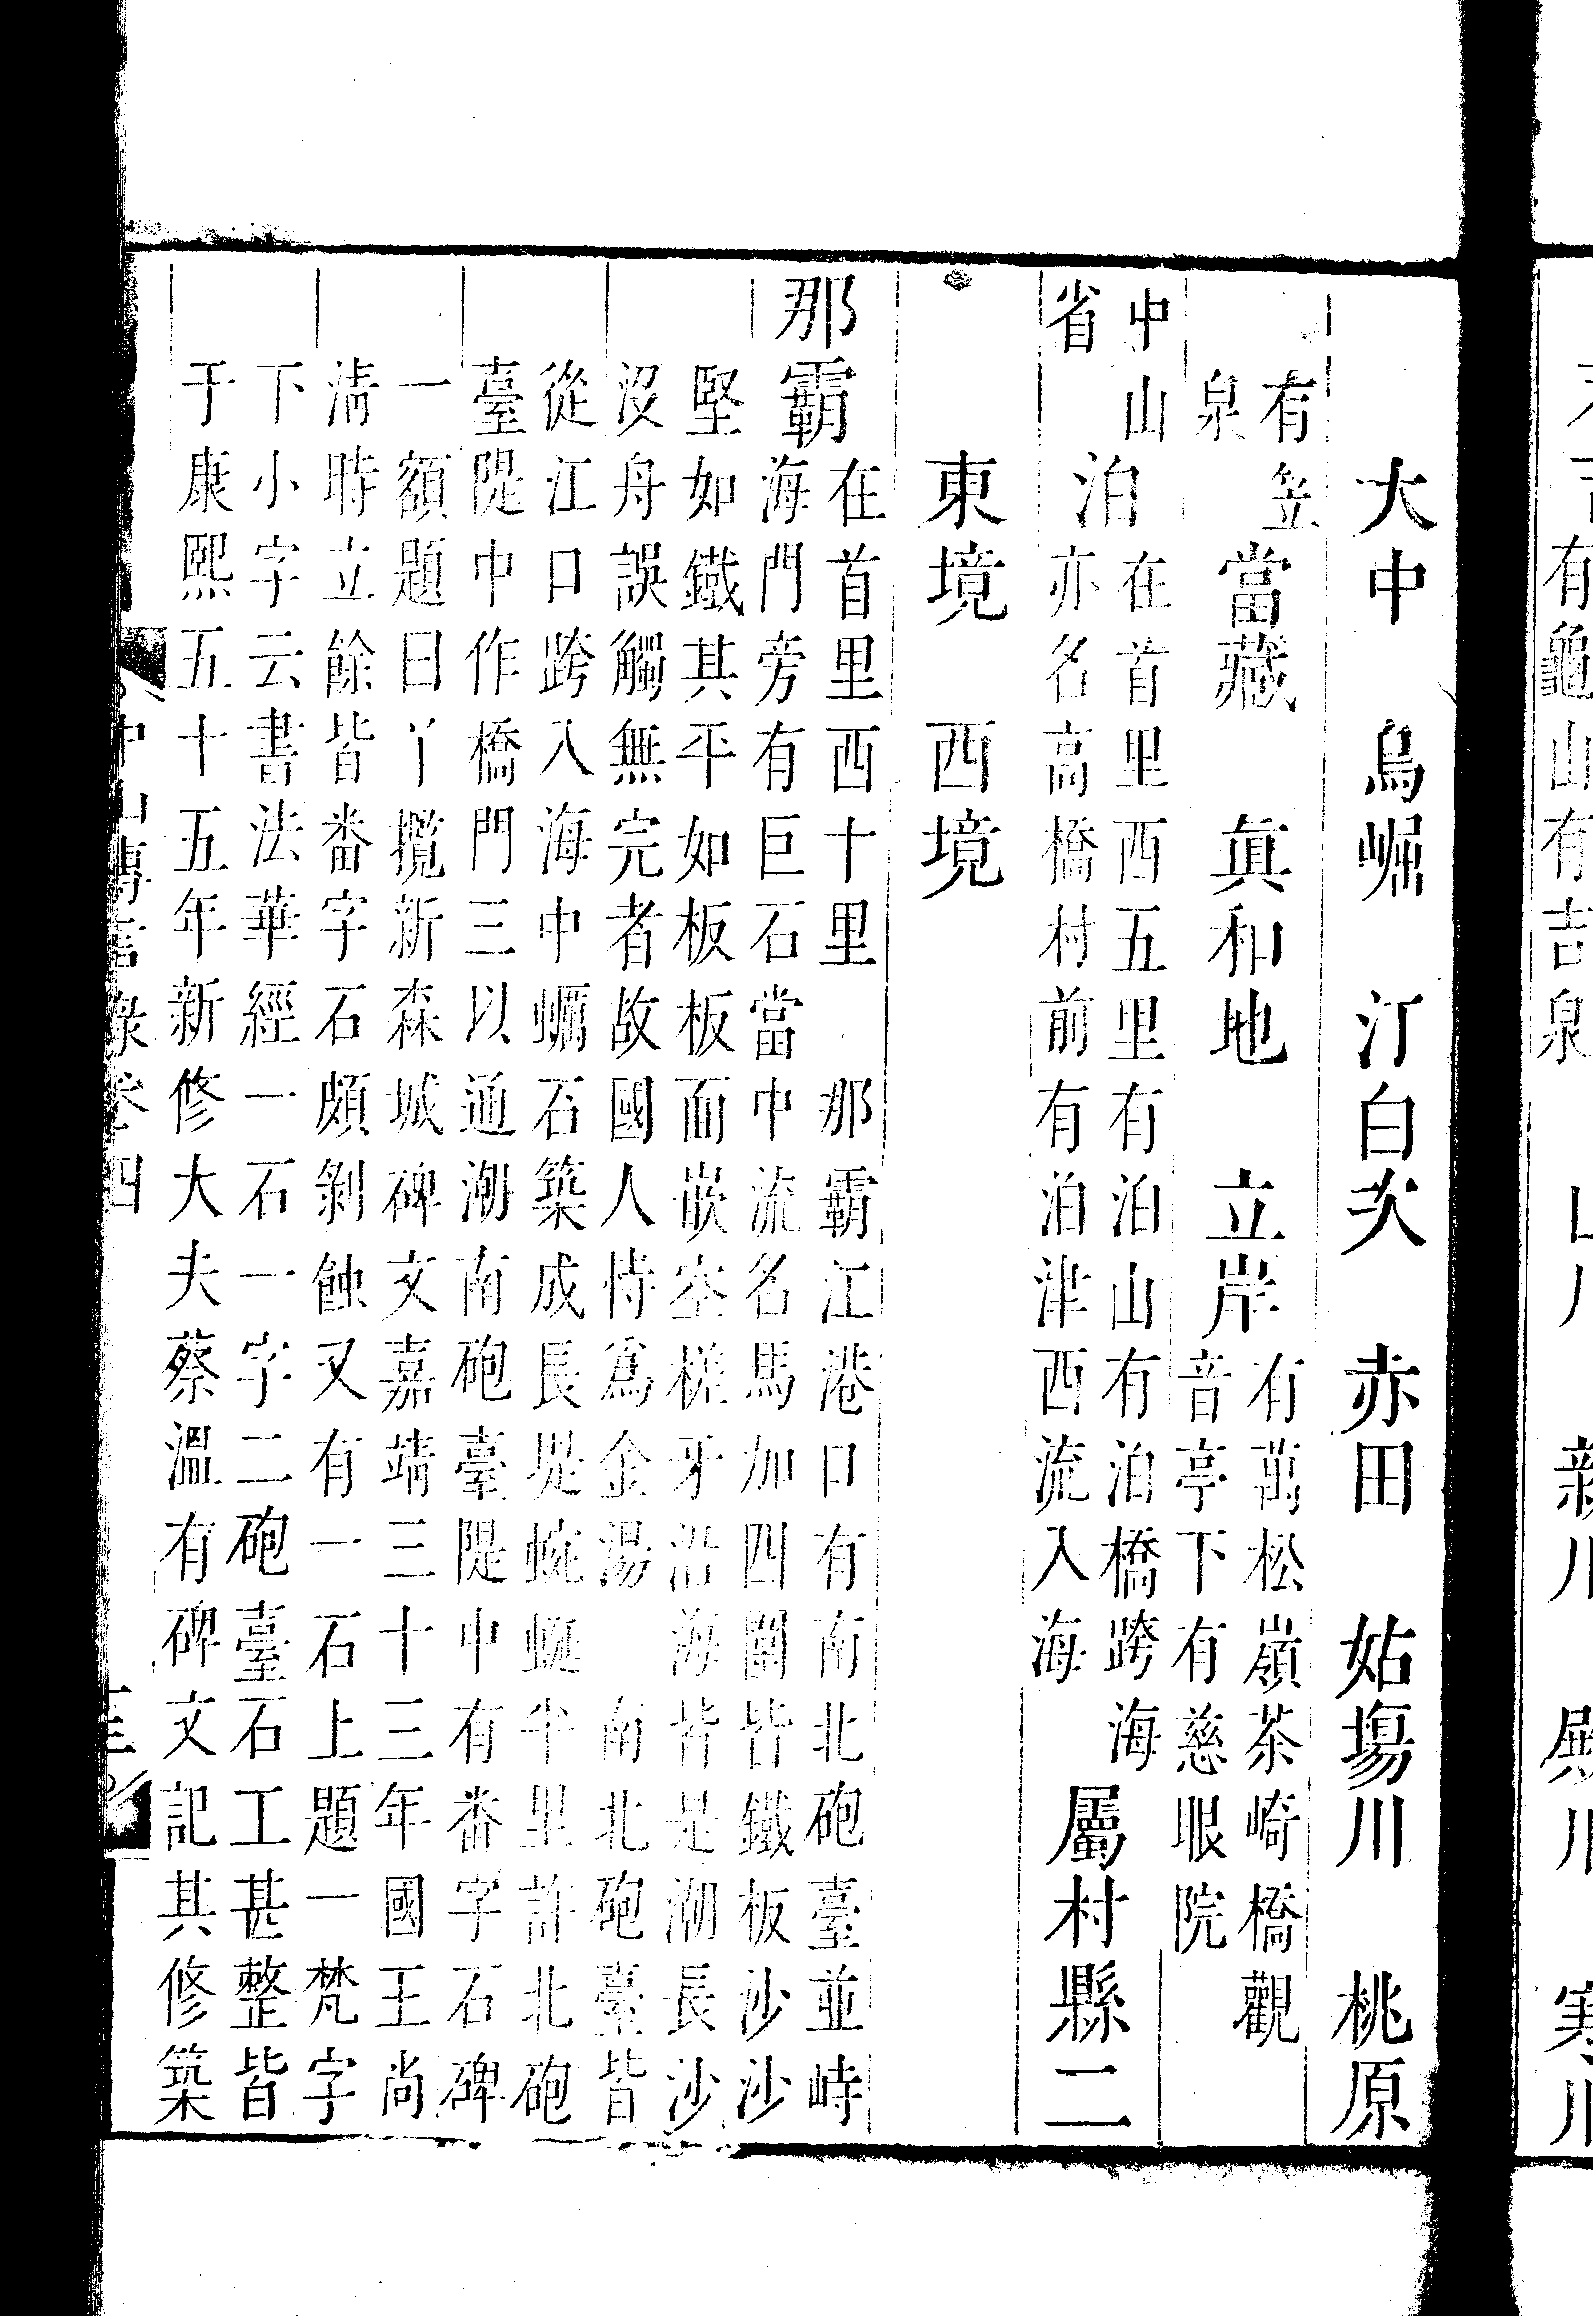 有龜山有吉泉
大中 烏崛 汀白次 赤田 姑塲川 桃原
有笠
泉
當藏 眞和地 立岸
有萬松嶺茶崎橋觀
音亭下有慈眼院
中山
省
泊
在首里西五里有泊山有泊橋跨海
亦名高橋村前有泊津西流入海
屬村縣二
東境 西境
那霸
在首里西十里 那霸江港口有南北砲臺並峙
海門旁有巨石當中流名馬加四圍皆鐵板沙沙
堅如鐵其平如板板而嵌空槎牙沿海皆是潮長沙
沒舟誤觸無完者故國人恃爲金湯 南北砲臺皆
從江口跨入海中蠣石築成長堤蜿蜒半里許北砲
臺隄中作橋門三以通潮南砲臺隄中有番字石碑
一額題曰丫攬新森城碑文嘉靖三十三年國王尚
淸時立餘皆番字石頗剝蝕又有一石上題一梵字
下小字云書法華經一石一字二砲臺石工甚整皆
于康熙五十五年新修大夫蔡溫有碑文記其修築
中山傳信錄卷四